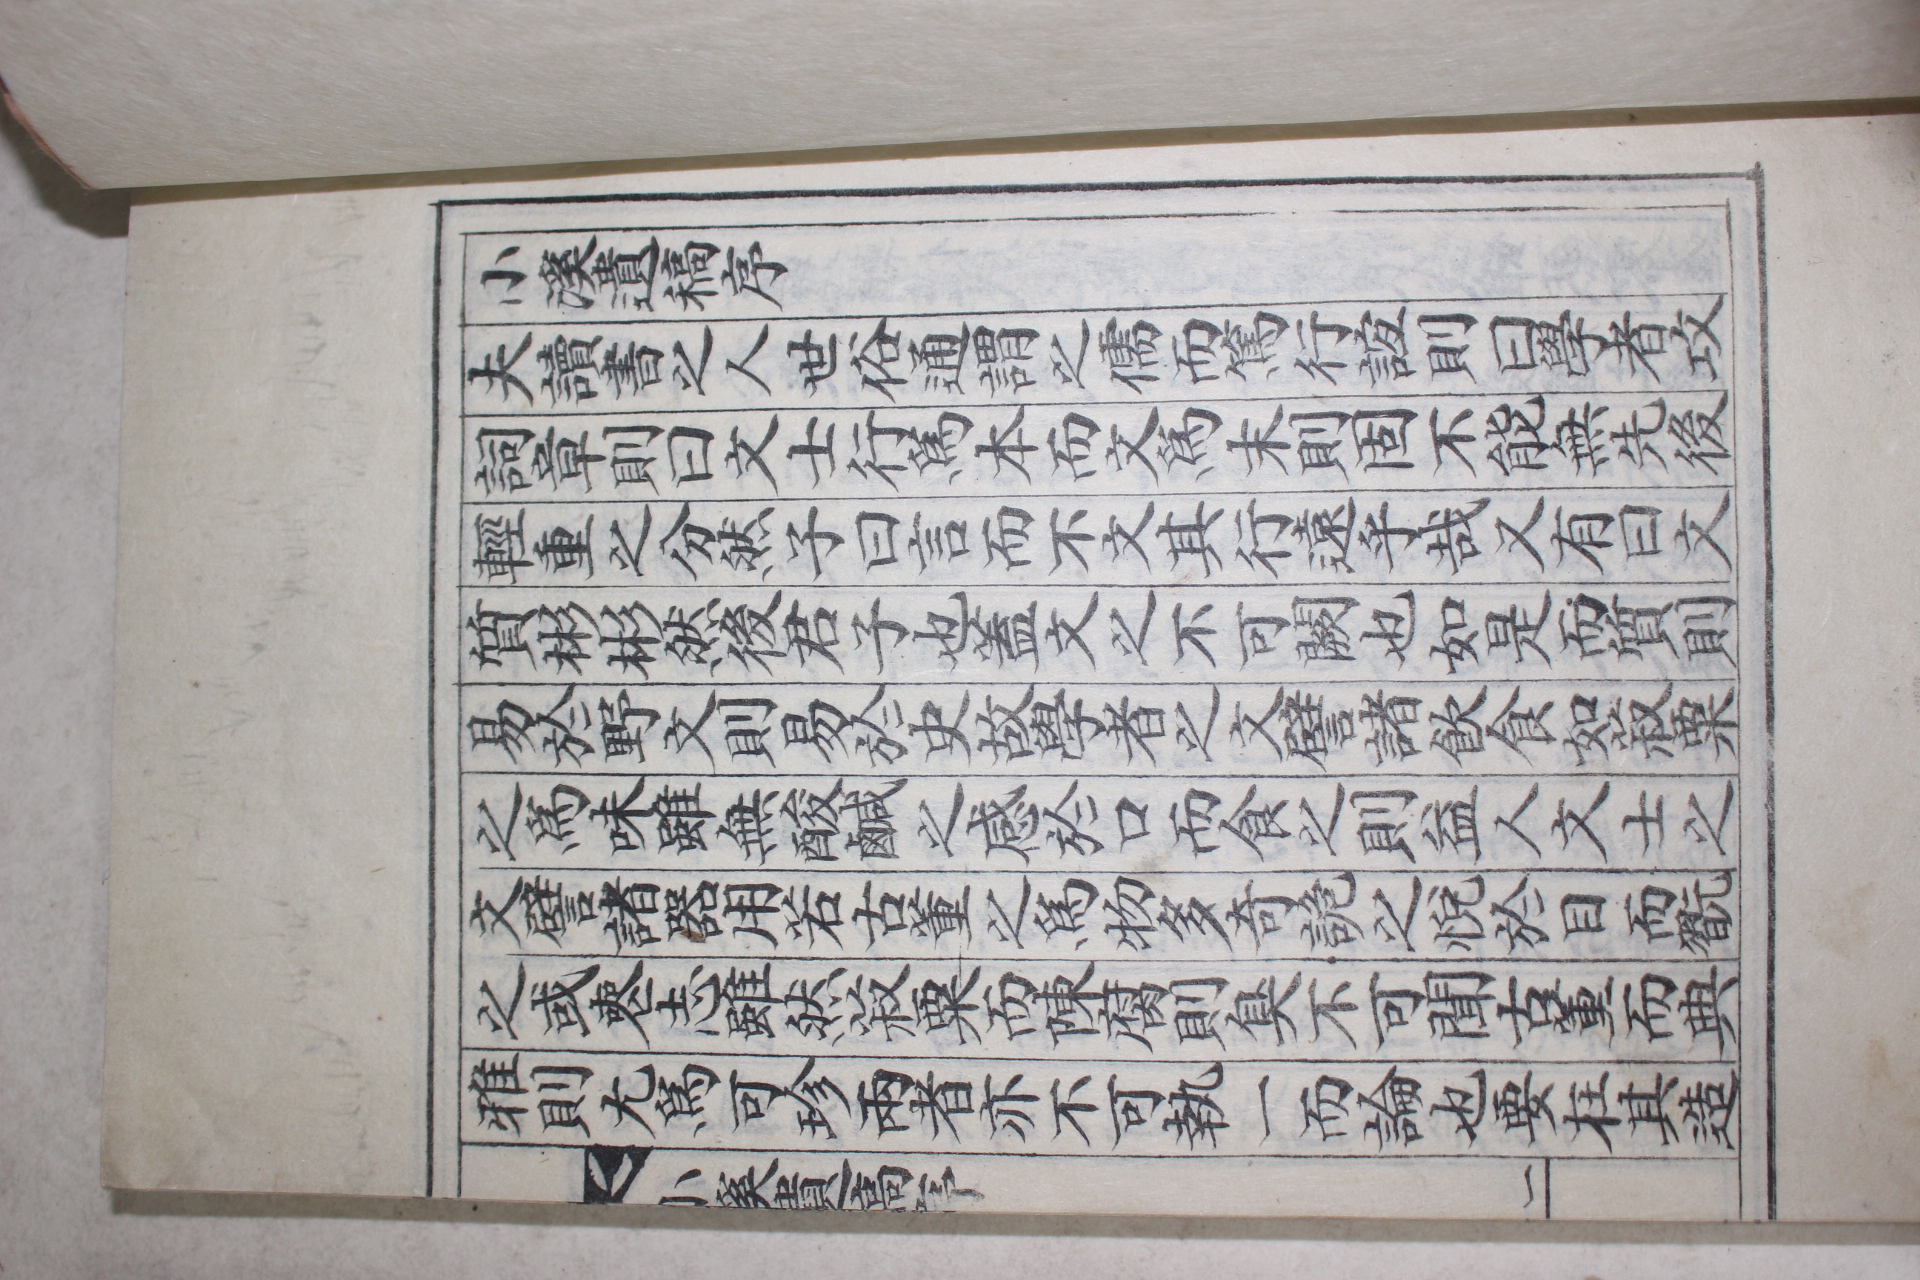 小溪遺稿序
夫讀書之人世俗通謂之儒而篤行誼則曰學者攻
詞章則曰文士行爲本而文爲末則固不能無先後
輕重之分然子曰言而不文其行遠乎哉又有曰文
質彬彬然後君子也蓋文之不可闕也如是而質則
易於野文則易於史故學者之文譬諸飮食如菽粟
之爲味雖無酸鹹之感於口而食之則益人文士之
文譬諸器用若古董之爲物多奇詭之悅於目而翫
之或喪志雖然菽粟而陳腐則臭不可聞古董而典
雅則尤爲可珍兩者亦不可執一而論也要在其造
小溪遺稿序 一